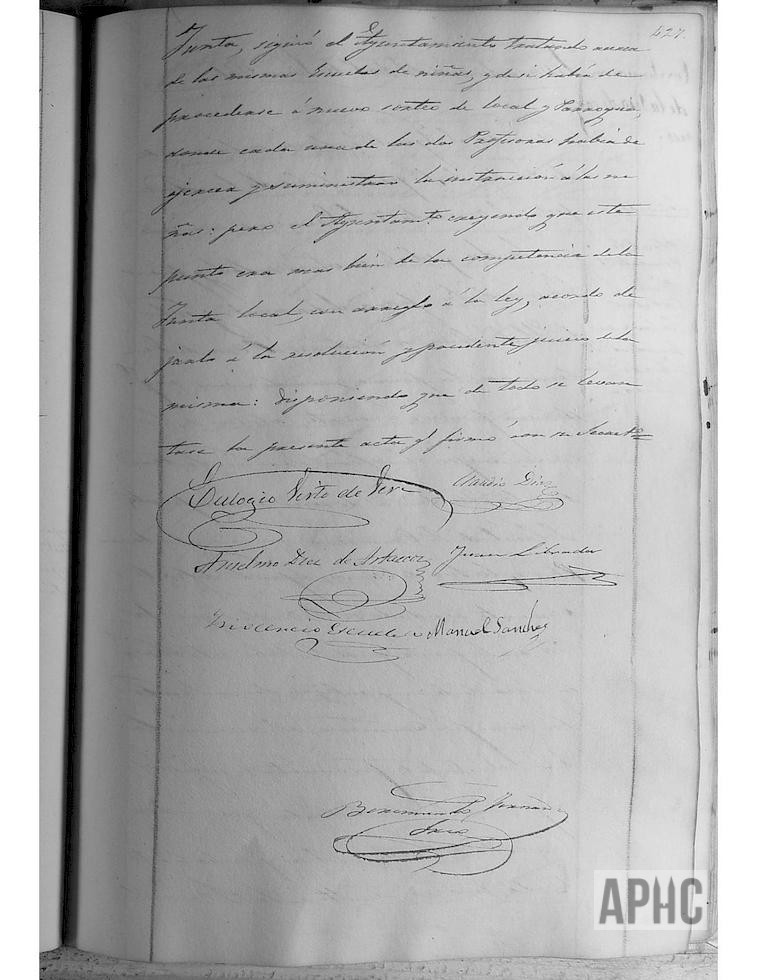 427.
Junta, siguió el Ayuntamiento tratando acerca
de las mismas Escuelas de niñas, y de si había de
procederse á nuevo sorteo de local y Parroquia,
donde cada una de las dos Profesoras había de
ejercer y suministrar la instrucción á las ni
ñas: pero el Ayuntamto. creyendo que este
punto era mas bien de la competencia de la
Junta local, con arreglo á la ley, acordó de
jarlo á la resolución y prudente juicio de la
misma: disponiendo que de todo se levan
tase la presente acta q.e firmó con su Secreto.
Eulogio Visto de Vera Claudio Diez
Anselmo Diez de Artacoz Juan Librada
Inocencio Escudero Manuel Sanchez
Bienvenido
APHC